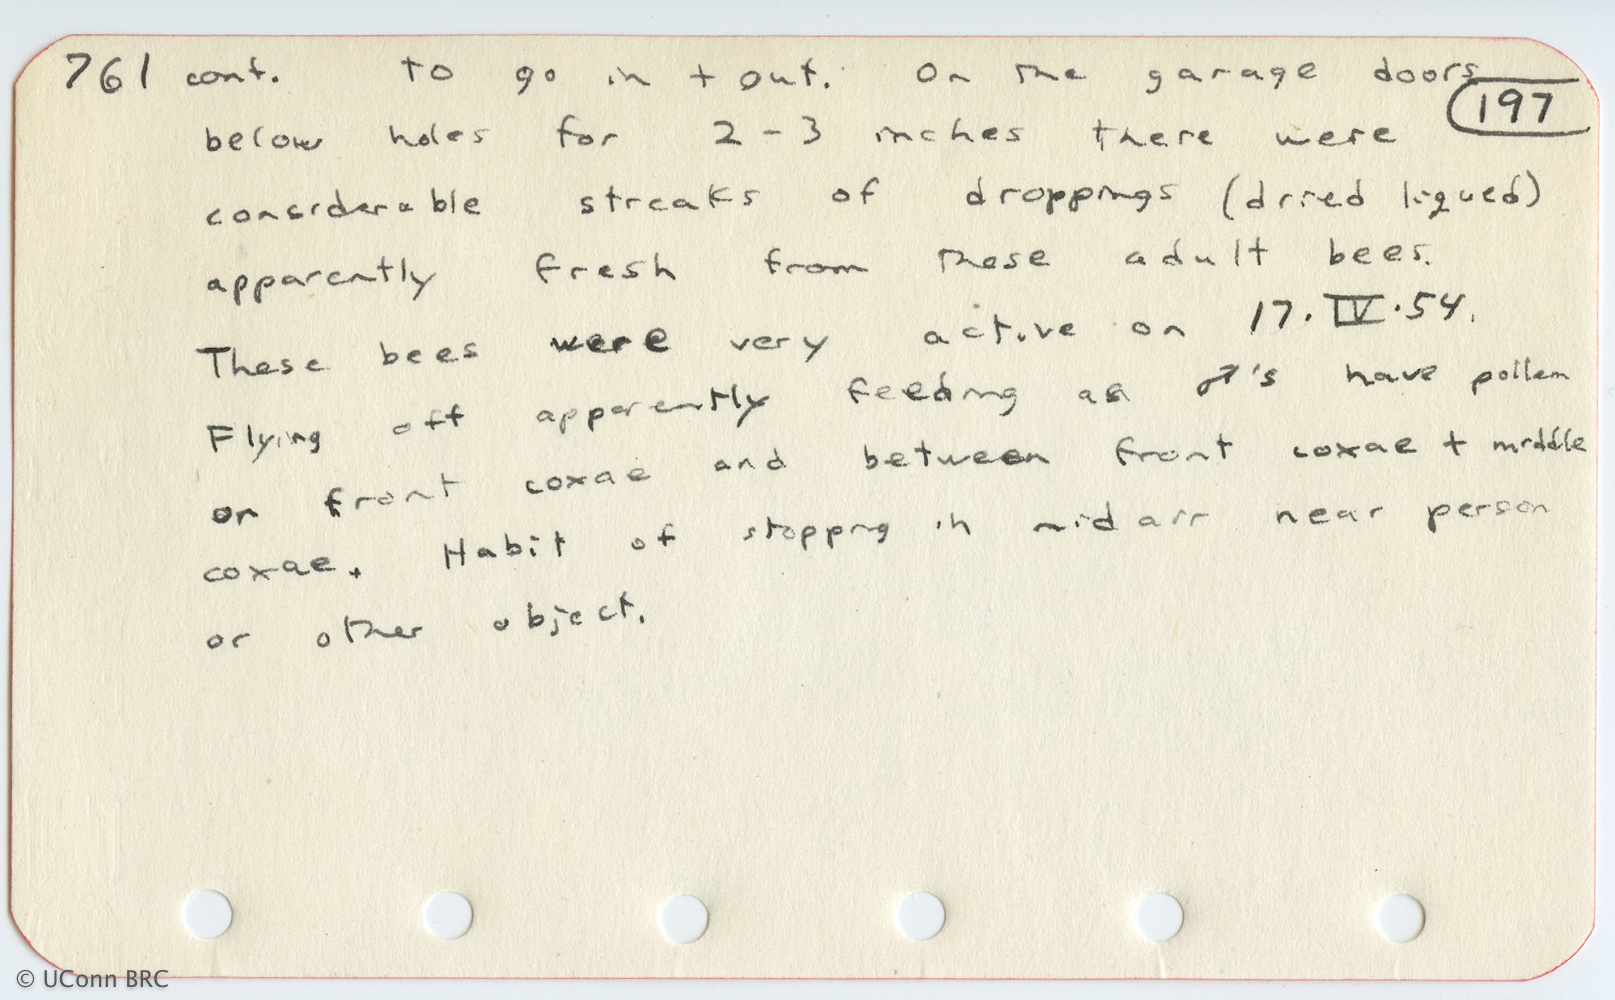 761 cont. to go in + out. On the garage doors
197
below holes for 2-3 inches there were
considerable streaks of droppings (dried liqued)
apparently fresh from these adult bees.
These bees were very active on 17.IV.54.
Flying off apparently feeding as ♂'s have pollen
on front coxae and between front coxae + middle
coxae. Habit of stopping in mid air near person
or other object.
© UConn BRC